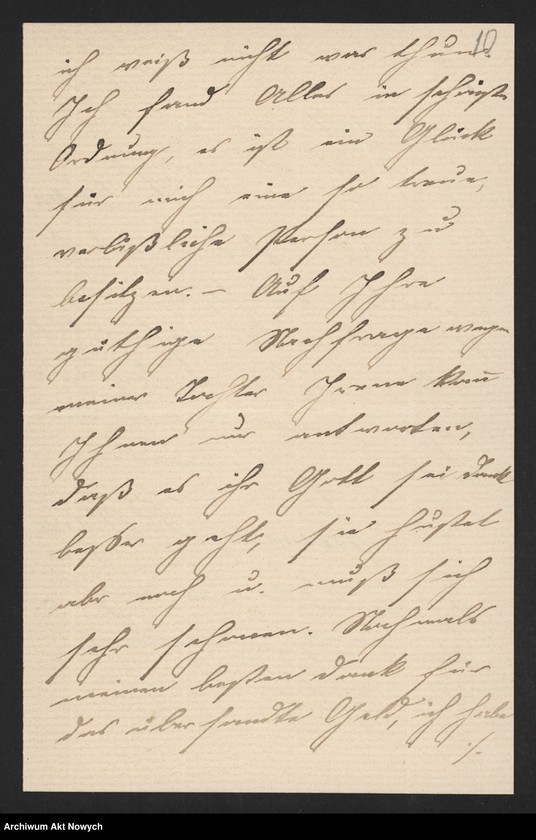 10
ich weiß nicht was thun.
Ich fand Alles in schönster
Ordnung, es ist ein Glück
für mich eine so treue,
verläßliche Person zu
besitzen. – Auf Ihre
güthige Nachfrage wegen
meiner Tochter Irene kann
Ihnen nur antworten,
daß es ihr Gott sei Dank
besser geht, sie hustet
aber noch u. muß sich
sehr schonen. Nochmals
meinen besten Dank für
das übersandte Geld, ich habe
./.
Archiwum Akt Nowych